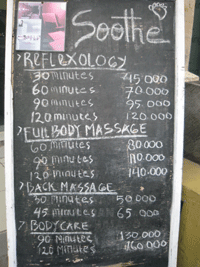 Soothe
? REFLEXOLOGY
30 minutes 45.000
60 minutes 70.000
90 minutes 95.000
120 minutes 120.000
? FULL BODY MASSAGE
60 minutes 80.000
90 minutes 110.000
120 minutes 140.000
? BACK MASSAGE
30 minutes 50.000
45 minutes 65 000
? BODYCARE
90 Minutes 130.000
120 Minutes 160.000